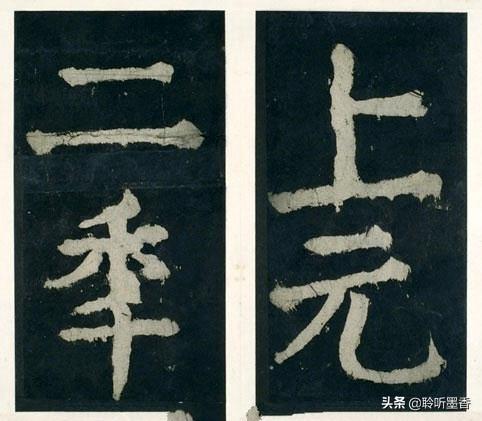 上元
二年
头条 @聆听墨香